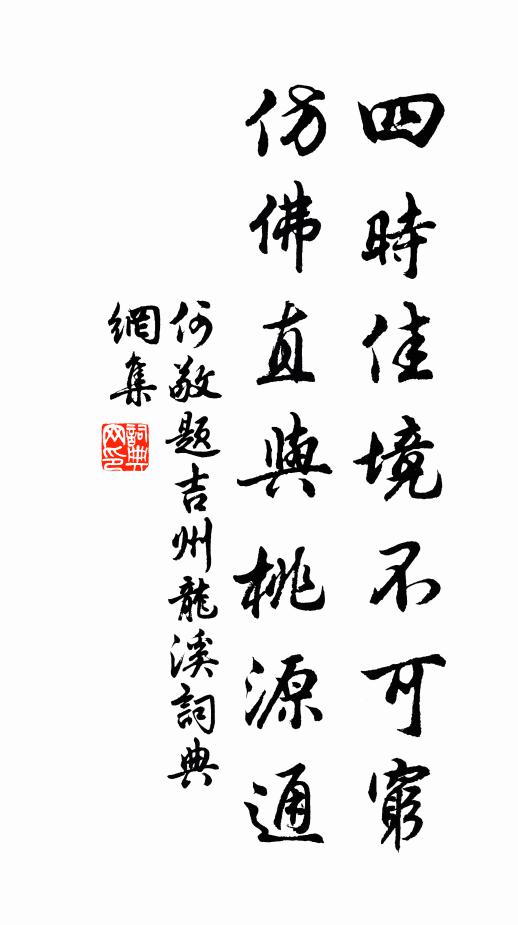 四時佳境不可窮
仿佛直與桃源通
何敬題吉州龍溪詞典
網集
詞典
网印